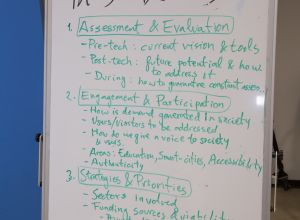 1. Assessment & Evaluation
- Pre-tech: current vision & tools
- Post-tech: future potential & how
to address it
- During: how to guarantee constant assess.
2. Engagement & Participation
- How is demand generated in society
- Users/visitors to be addressed
- How do we give a voice to society
& users.
- Areas: Education, Smart-cities, Accessibility
- Authenticity
3. Strategies & Priorities
- Sectors involved
- Funding sources & viability